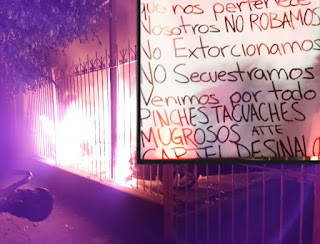 que nos pertenece
Nosotros NO ROBAMOS
No Extorcionamos
NO Secuestramos
Venimos por todo
PINCHES TACUACHES
MUGROSOS ATTE
CARTEL DE SINALO